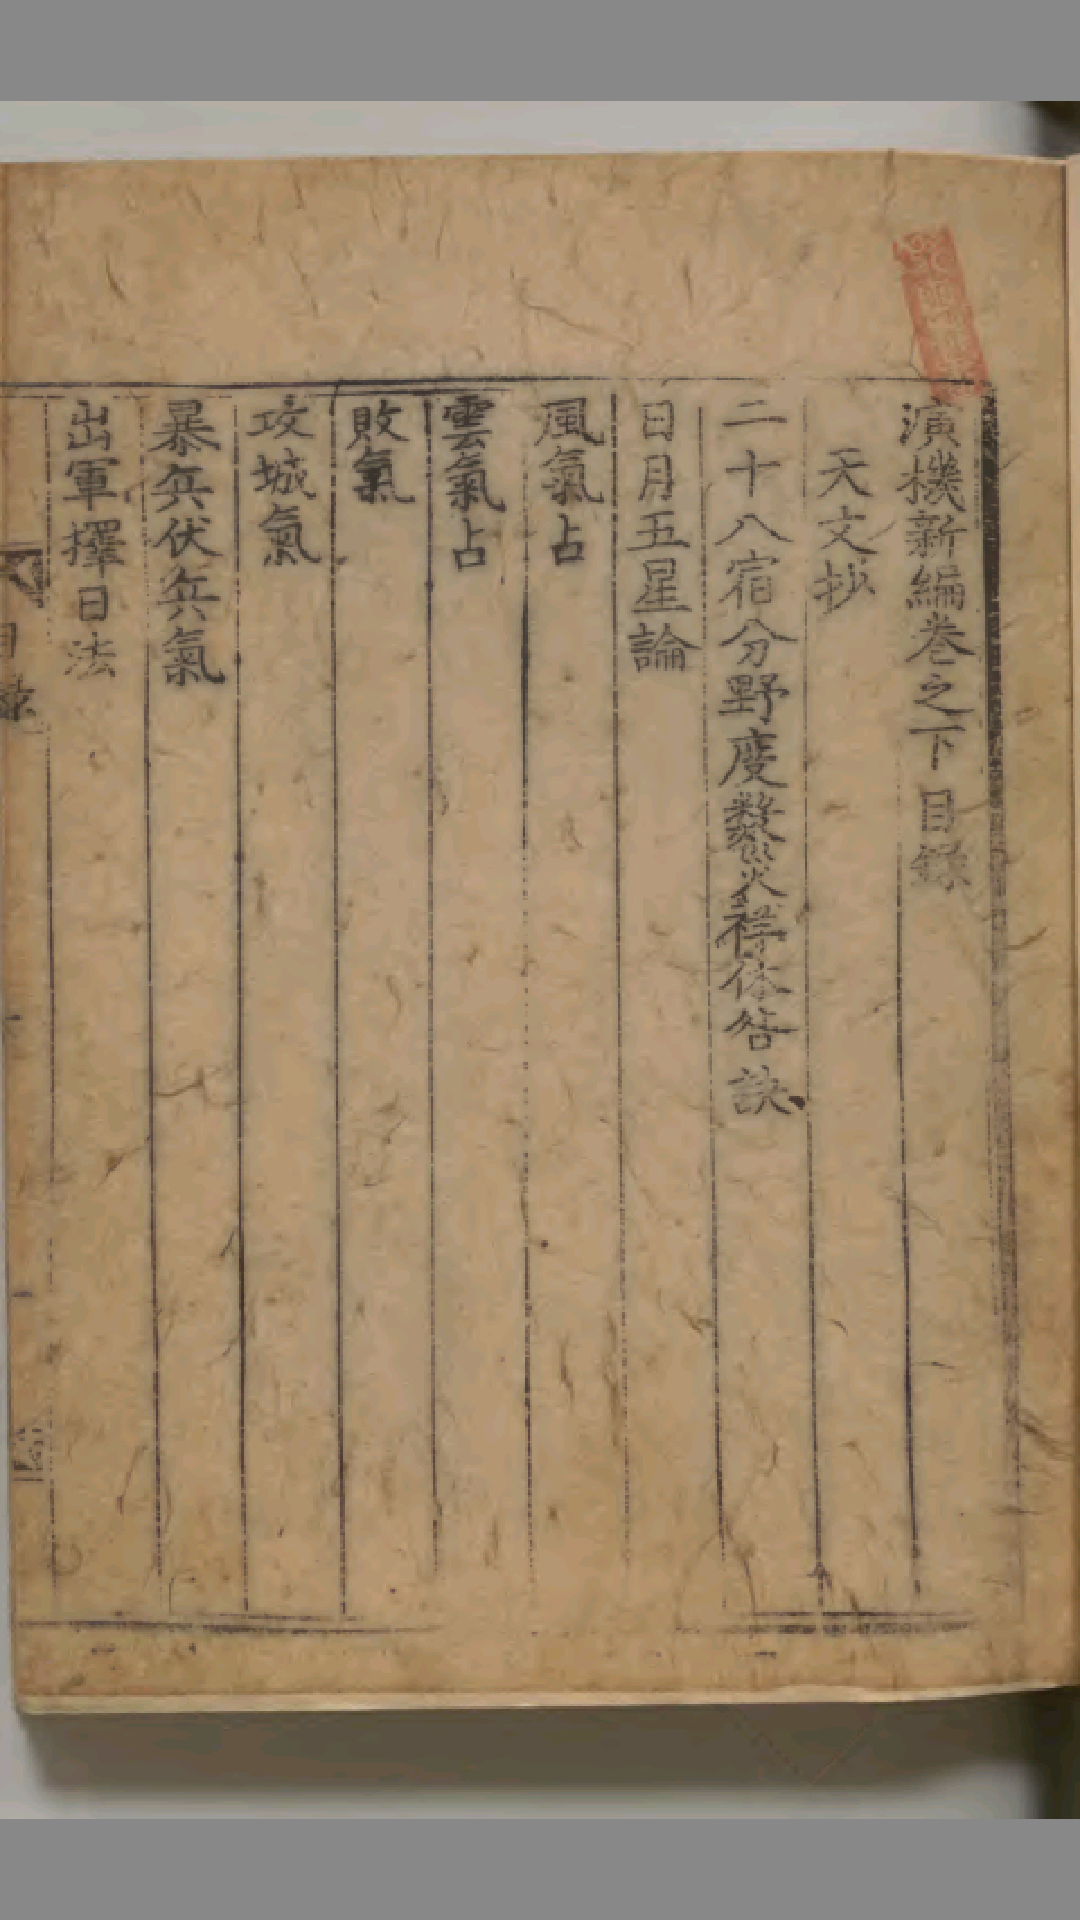 演機新編巻之下目錄
天文抄
二十八宿分野度數災祥休咎訣
日月五星論
風氣占
雲氣占
敗氣
攻城氣
暴兵伏兵氣
出軍擇日法
目錄